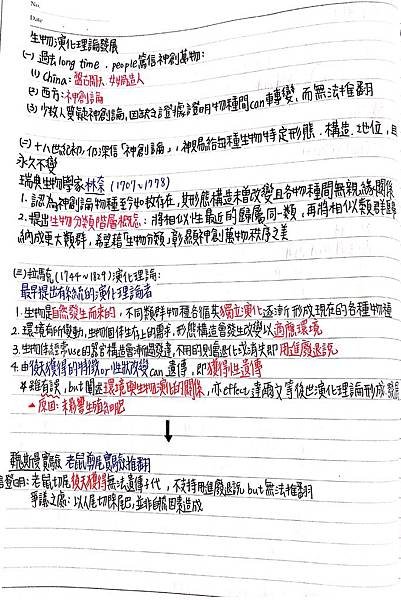 No.
Date
生物演化理論發展
(一) 過去long time . people篤信神創萬物:
(1) China: 盤古開天、女媧造人
(2) 西方: 神創論
(3) 少數人質疑神創論, 因缺乏證據證明物種間can轉變, 而無法推翻
(二) 十八世紀初, 仍深信「神創論」, 神賜給每種生物特定形態、構造、地位, 且
永久不變
瑞典生物學家林奈 (1707~1778)
1. 認為神創論物種至今如故存在, 其形態構造未曾改變且各物種間無親緣關係
2. 提出生物分類階層概念: 將相似性最近的歸屬同一類, 再將相似類群歸
納成更大類群, 希望藉「生物分類」彰顯神創萬物秩序之美
(三) 拉馬克 (1744~1829) 演化理論:
最早提出有系統的演化理論者
1. 生物是自然發生而來的, 不同類群物種各循獨立演化逐漸形成現在的各種物種
2. 環境有所變動, 生物個體生存上的需求, 形態構造會發生改變以適應環境
3. 生物体經常use的器官構造會漸趨發達, 不用的則處退化或消失即用進廢退說
4. 由後天獲得的特徵or性狀改變can遺傳, 即獲得性遺傳
* 雖有誤, but闡述環境與生物演化的關係, 亦effect達爾文等後世演化理論形成發展
原因: 未影響生殖細胞
↓
魏斯曼實驗 老鼠剪尾實驗推翻
證明: 老鼠切尾後天獲得無法遺傳子代, 不支持用進廢退說but無法推翻
爭議之處: 以人為切除尾巴, 並非自然因素造成